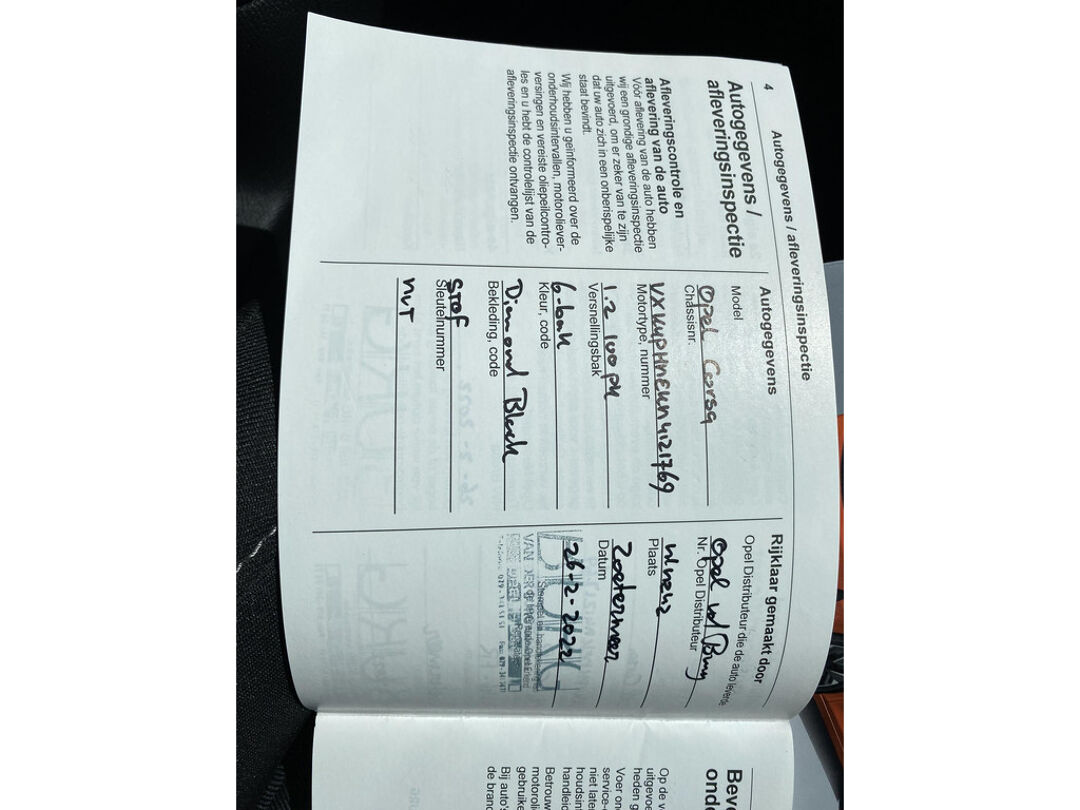 4 Autogegevens / afleveringsinspectie
Autogegevens /
afleveringsinspectie
Afleveringscontrole en
aflevering van de auto
Vóór aflevering van de auto hebben
wij een grondige afleveringsinspectie
uitgevoerd, om er zeker van te zijn
dat uw auto zich in een onberispelijke
staat bevindt.
Wij hebben u geïnformeerd over de
onderhoudsintervallen, motoroliever-
versingen en vereiste oliepeilcontro-
les en u hebt de controlelijst van de
afleveringsinspectie ontvangen.
Autogegevens
Model
Opel Corsa
Chassisnr.
Motortype, nummer
1.2 100pk
Versnellingsbak
6-bak
Kleur, code
Diamond Black
Bekleding, code
Stof
Sleutelnummer
nvt
Rijklaar gemaakt door
Opel Distributeur die de auto leverde
Opel vd
Nr. Opel Distributeur
Plaats
Zoetermeer
Datum
26-2-2022
VAN DER
Bev
onde
Op de v
uitgevoe
heden g
Voer on
service-
niet late
houdsin
handleid
Betrouw
motoroli
gebruike
Bij auto's
de brand